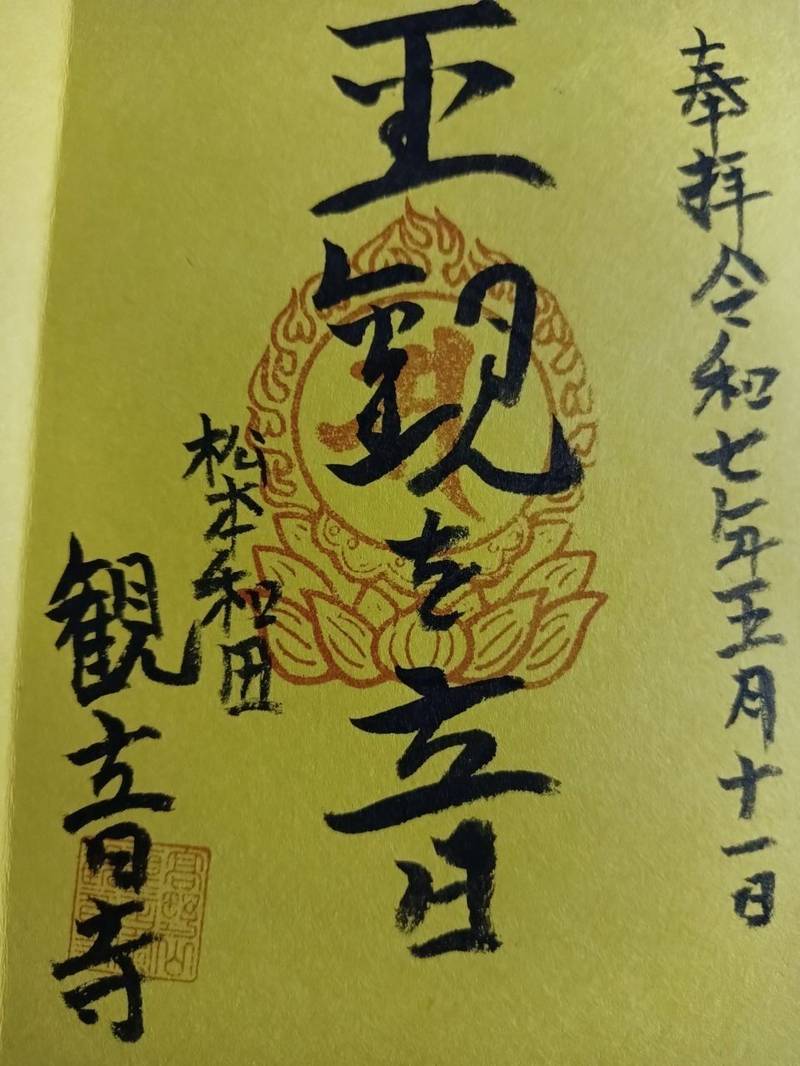 奉拝令和七年五月十一日
正観世音
松本和田
観音寺